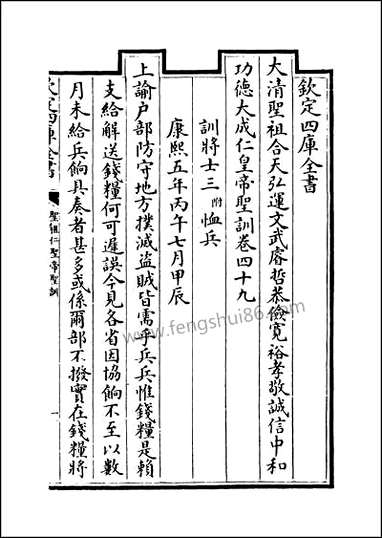 欽定四庫全書
大清聖祖合天弘運文武睿哲恭儉寬裕孝敬誠信中和
功德大成仁皇帝聖訓卷四十九
訓將士三附恤兵
康熙五年丙午七月甲辰
上諭户部防守地方撲滅盗賊皆需乎兵兵惟錢糧是賴
支給解送錢糧何可遲誤今見各省因協餉不至以數
月未給兵餉具奏者甚多或係爾部不撥實在錢糧將
欽定四庫全書
聖祖仁皇帝聖訓
一
www.fengshui86.com